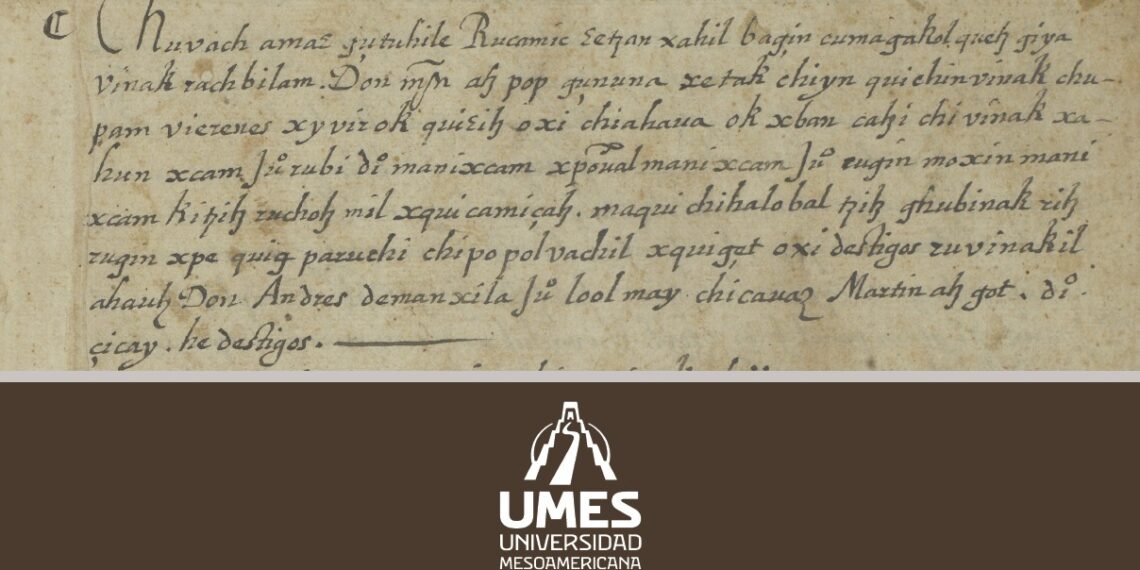 Chuvach amaɛ çutuhile Rucamic ɛeꜩan xahil baqin cumagakol queh çiya
vinak rachbilam. Don mr̃n ah pop çununa xetak chiyn quichinvinak chu-
pam vierenes xyvirok quiɛih oxi chiahaua ok xban cahi chi vinak xa-
hun xcam Juº rubi dº manixcam xpõual manixcam Juº rugin moxin mani
xcam kitzih ruchoh mil xquicamiçah. maqui chihalobal tzih ghubinak rih
rugin xpe quig paruchi chipopol vachil xquiget oxi destigos ruvinakil
ahauh Don Andres demanxila Juº lool may chicauaɀ Martin ah got. dº.
çicay. he destigos.
UMES
UNIVERSIDAD
MESOAMERICANA